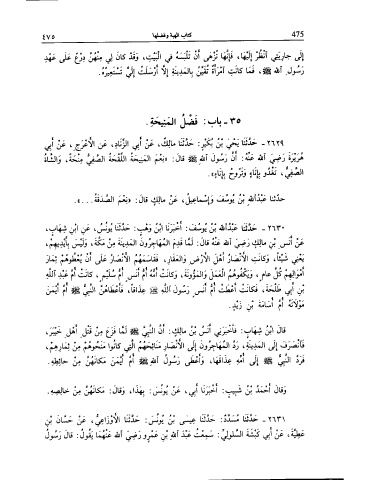 475
كتاب الهبة وفضلها
٤٧٥
إلى جاريتي انْظُرْ إلَيْهَا، فَإِنَّهَا تُزْهَى أَنْ تَلْبَسَهُ في الْبَيْتِ، وَقَدْ كانَ لِي مِنْهُنَّ دِرْعٌ عَلَى عَهْدِ
رَسُولِ اللهِ ﷺ، فَمَا كانَتِ امْرَأَةٌ تُقَيَّنُ بِالمَدِينَةِ إلَّا أَرْسَلَتْ إِلَيَّ تَسْتَعِيرُهُ.
٣٥- باب: فَضْلُ المَنِيحَةِ.
٢٦٢٩- حَدَّثَنَا يَحْيَىٰ بْنُ بُكَيْرٍ: حَدَّثَنَا مالِكٌ، عَنْ أَبِي الزِّنَادِ، عَنِ الأَعْرَجِ، عَنْ أَبِي
هُرَيْرَةَ رَضِيَ اللهُ عَنْهُ: أَنَّ رَسُولَ اللهِ ﷺ قالَ: «نِعْمَ المَنِيحَةُ اللِّقْحَةُ الصَّفِيُّ مِنْحَةً، وَالشَّاةُ
الصَّفِيُّ، تَغْدُو بِإِنَاءٍ وَتَرُوحُ بِإِنَاءٍ».
حدثنا عبدُاللهِ بْنُ يُوسُفَ وَإِسْماعِيلُ، عَنْ مالِكٍ قالَ: «نِعْمَ الصَّدَقَةُ ...».
٢٦٣٠- حَدَّثَنَا عبدُاللهِ بْنُ يُوسُفَ: أَخْبَرَنَا ابْنُ وَهْبٍ: حَدَّثَنَا يُونُسُ، عَنِ ابْنِ شِهَابٍ،
عَنْ أَنَسِ بْنِ مالِكٍ رَضِيَ اللهُ عَنْهُ قالَ: لَمَّا قَدِمَ المُهَاجِرُونَ المَدِينَةَ مِنْ مَكَّةَ، وَلَيْسَ بِأَيْدِيهِمْ،
يَعْنِي شَيْئًا، وَكانَتِ الأَنْصَارُ أَهْلَ الأَرْضِ وَالعَقَارِ، فَقَاسَمَهُمُ الأَنْصَارُ عَلَى أَنْ يُعْطُوهُمْ ثِمَارَ
أَمْوَالِهِمْ كُلَّ عامٍ، وَيَكْفُوهُمُ الْعَمَلَ وَالمَؤُونَةَ، وَكانَتْ أُمُّهُ أُمُّ أَنَسٍ أُمُّ سُلَيْمٍ، كانَتْ أُمَّ عَبْدِ اللهِ
بْنِ أَبِي طَلْحَةَ، فَكانَتْ أَعْطَتْ أُمُّ أَنَسٍ رَسُولَ اللهِ ﷺ عِذَاقًا، فَأَعْطَاهُنَّ النَّبِيُّ ﷺ أُمَّ أَيْمَنَ
مَوْلَاتَهُ أُمَّ أُسَامَةَ بْنِ زَيْدٍ.
قالَ ابْنُ شِهَابٍ: فَأَخْبَرَنِي أَنَسُ بْنُ مالِكٍ: أَنَّ النَّبِيَّ ﷺ لَمَّا فَرَغَ مِنْ قَتْلِ أَهْلِ خَيْبَرَ،
فَانْصَرَفَ إِلَى المَدِينَةِ، رَدَّ المُهَاجِرُونَ إِلَى الأَنْصَارِ مَنَائِحَهُمُ الَّتِي كانُوا مَنَحُوهُمْ مِنْ ثِمَارِهِمْ،
فَرَدَّ النَّبِيُّ ﷺ إِلَى أُمِّهِ عِذَاقَهَا، وَأَعْطَى رَسُولُ اللهِ ﷺ أُمَّ أَيْمَنَ مَكانَهُنَّ مِنْ حائِطِهِ.
وَقالَ أَحْمَدُ بْنُ شَبِيبٍ: أَخْبَرَنَا أَبِي، عَنْ يُونُسَ: بِهٰذَا، وَقالَ: مَكانَهُنَّ مِنْ خالِصِهِ.
٢٦٣١- حَدَّثَنَا مُسَدَّدٌ: حَدَّثَنَا عِيسَى بْنُ يُونُسَ: حَدَّثَنَا الأَوْزَاعِيُّ، عَنْ حَسَّانَ بْنِ
عَطِيَّةَ، عَنْ أَبِي كَبْشَةَ السَّلُولِيِّ: سَمِعْتُ عَبْدَ اللهِ بْنَ عَمْرٍو رَضِيَ اللهُ عَنْهُمَا يَقُولُ: قالَ رَسُولُ